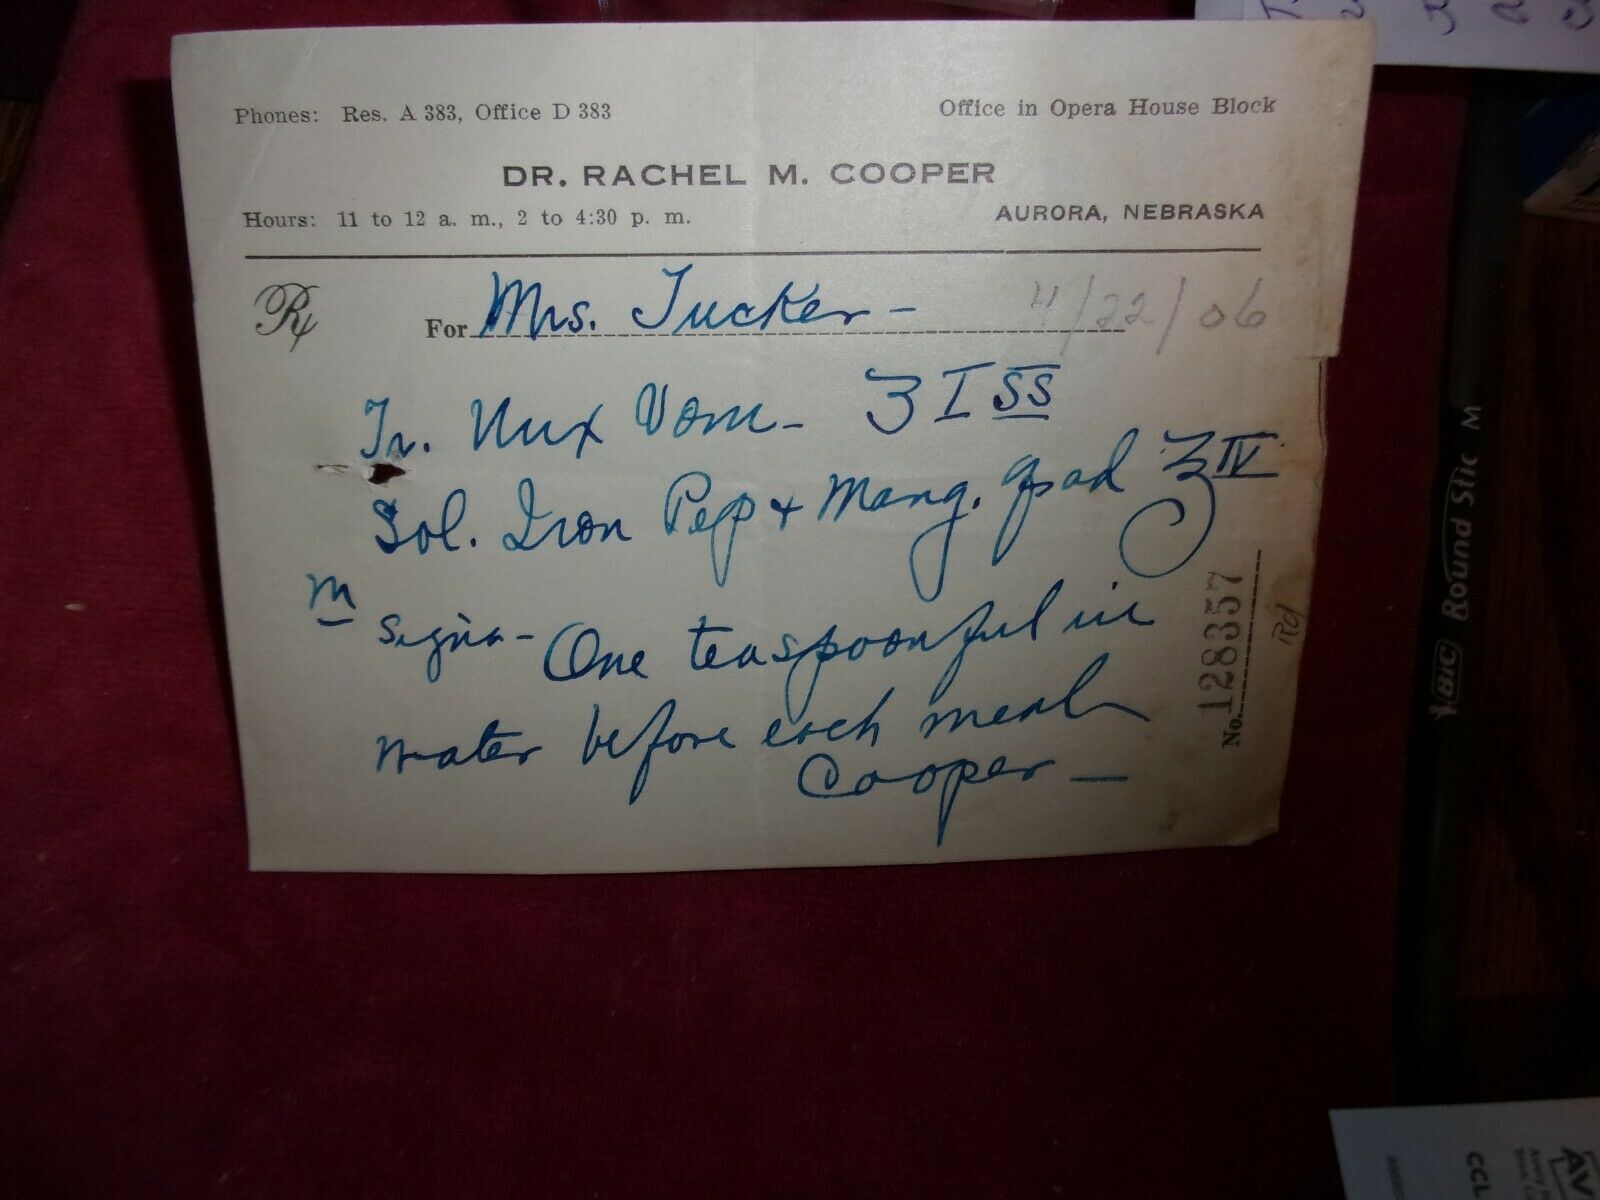 Phones: Res. A 383, Office D 383
Office in Opera House Block
DR. RACHEL M. COOPER
Hours: 11 to 12 a. m., 2 to 4:30 p. m.
AURORA, NEBRASKA
℞ For Mrs. Tucker - 4/22/06
Tr. Nux Vom - ʒ I ss
Sol. Iron Pep + Mang. q s ad ℥ IV
M
Signa - One teaspoonful in
water before each meal
Cooper -
No. 128357
Rd
BIC Round Stic M
AV
CCL